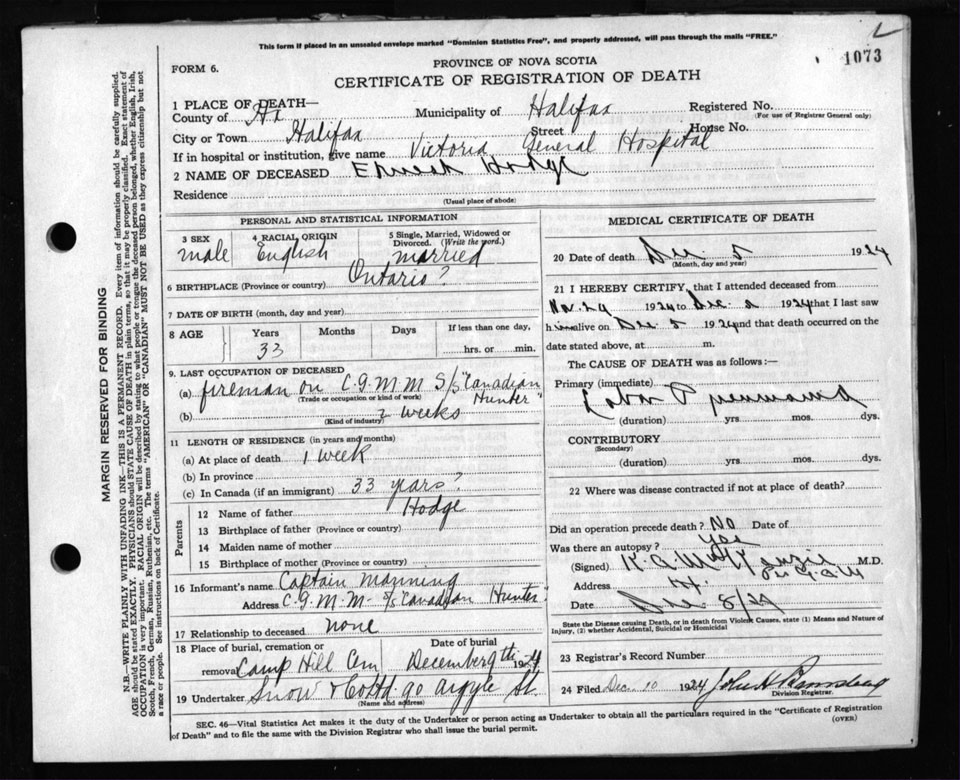 L
This form if placed in an unsealed envelope marked "Dominion Statistics Free", and properly addressed, will pass through the mails "FREE."
1073
FORM 6.
PROVINCE OF NOVA SCOTIA
CERTIFICATE OF REGISTRATION OF DEATH
1 PLACE OF DEATH—
County of Hx Municipality of Halifax Registered No.
(For use of Registrar General only)
City or Town Halifax Street House No.
If in hospital or institution, give name Victoria General Hospital
2 NAME OF DECEASED Ernest Hodge
Residence
(Usual place of abode)
PERSONAL AND STATISTICAL INFORMATION
3 SEX 4 RACIAL ORIGIN 5 Single, Married, Widowed or Divorced. (Write the word.)
male English married
6 BIRTHPLACE (Province or country) Ontario?
7 DATE OF BIRTH (month, day and year)
8 AGE Years Months Days If less than one day
33 hrs. or min.
9. LAST OCCUPATION OF DECEASED
(a) fireman on C.G.M.M S/S "Canadian Hunter"
(Trade or occupation or kind of work)
(b) 2 weeks
(Kind of industry)
11 LENGTH OF RESIDENCE (in years and months)
(a) At place of death 1 week
(b) In province
(c) In Canada (if an immigrant) 33 years?
Parents
12 Name of father Hodge
13 Birthplace of father (Province or country)
14 Maiden name of mother
15 Birthplace of mother (Province or country)
16 Informant's name Captain Manning
Address C.G.M.M. S/S "Canadian Hunter"
17 Relationship to deceased none
18 Place of burial, cremation or removal Camp Hill Cem
Date of burial December 9th 1924
19 Undertaker Snow & Co Ltd 90 Argyle St.
(Name and address)
MEDICAL CERTIFICATE OF DEATH
20 Date of death Dec. 5 1924
(Month, day and year)
21 I HEREBY CERTIFY, that I attended deceased from
Nov. 29 1924 to Dec. 1924 that I last saw
h im alive on Dec 5 1924 and that death occurred on the
date stated above, at m.
The CAUSE OF DEATH was as follows:—
Primary (immediate)
Lobar Pneumonia
(duration) yrs mos. dys.
CONTRIBUTORY
(Secondary)
(duration) yrs mos. dys.
22 Where was disease contracted if not at place of death?
Did an operation precede death? No Date of
Was there an autopsy? Yes
(Signed) K. A. MacKenzie M.D.
Address Hx.
Date Dec 8/24
State the Disease causing Death, or in death from Violent Causes, state (1) Means and Nature of
Injury, (2) whether Accidental, Suicidal or Homicidal
23 Registrar's Record Number
24 Filed Dec. 10 1924 John H.
Division Registrar.
SEC. 46—Vital Statistics Act makes it the duty of the Undertaker or person acting as Undertaker to obtain all the particulars required in the "Certificate of Registration
of Death" and to file the same with the Division Registrar who shall issue the burial permit.
(OVER)
MARGIN RESERVED FOR BINDING
N.B.—WRITE PLAINLY WITH UNFADING INK—THIS IS A PERMANENT RECORD. Every item of information should be carefully supplied.
AGE should be stated EXACTLY. PHYSICIANS should STATE CAUSE OF DEATH in plain terms, so that it may be properly classified. Exact statement of
OCCUPATION is very important. RACIAL ORIGIN will be described by stating to what people or tongue the deceased person belonged, whether English, Irish,
Scotch, French, German, Russian, Ruthenian, etc. The terms "AMERICAN" or "CANADIAN" MUST NOT BE USED as they express citizenship but not
a race or people. See instructions on back of Certificate.